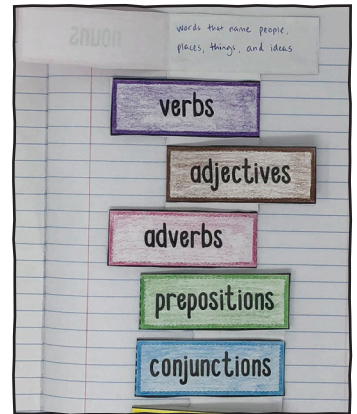 nouns
words that name people,
places, things, and ideas
verbs
adjectives
adverbs
prepositions
conjunctions